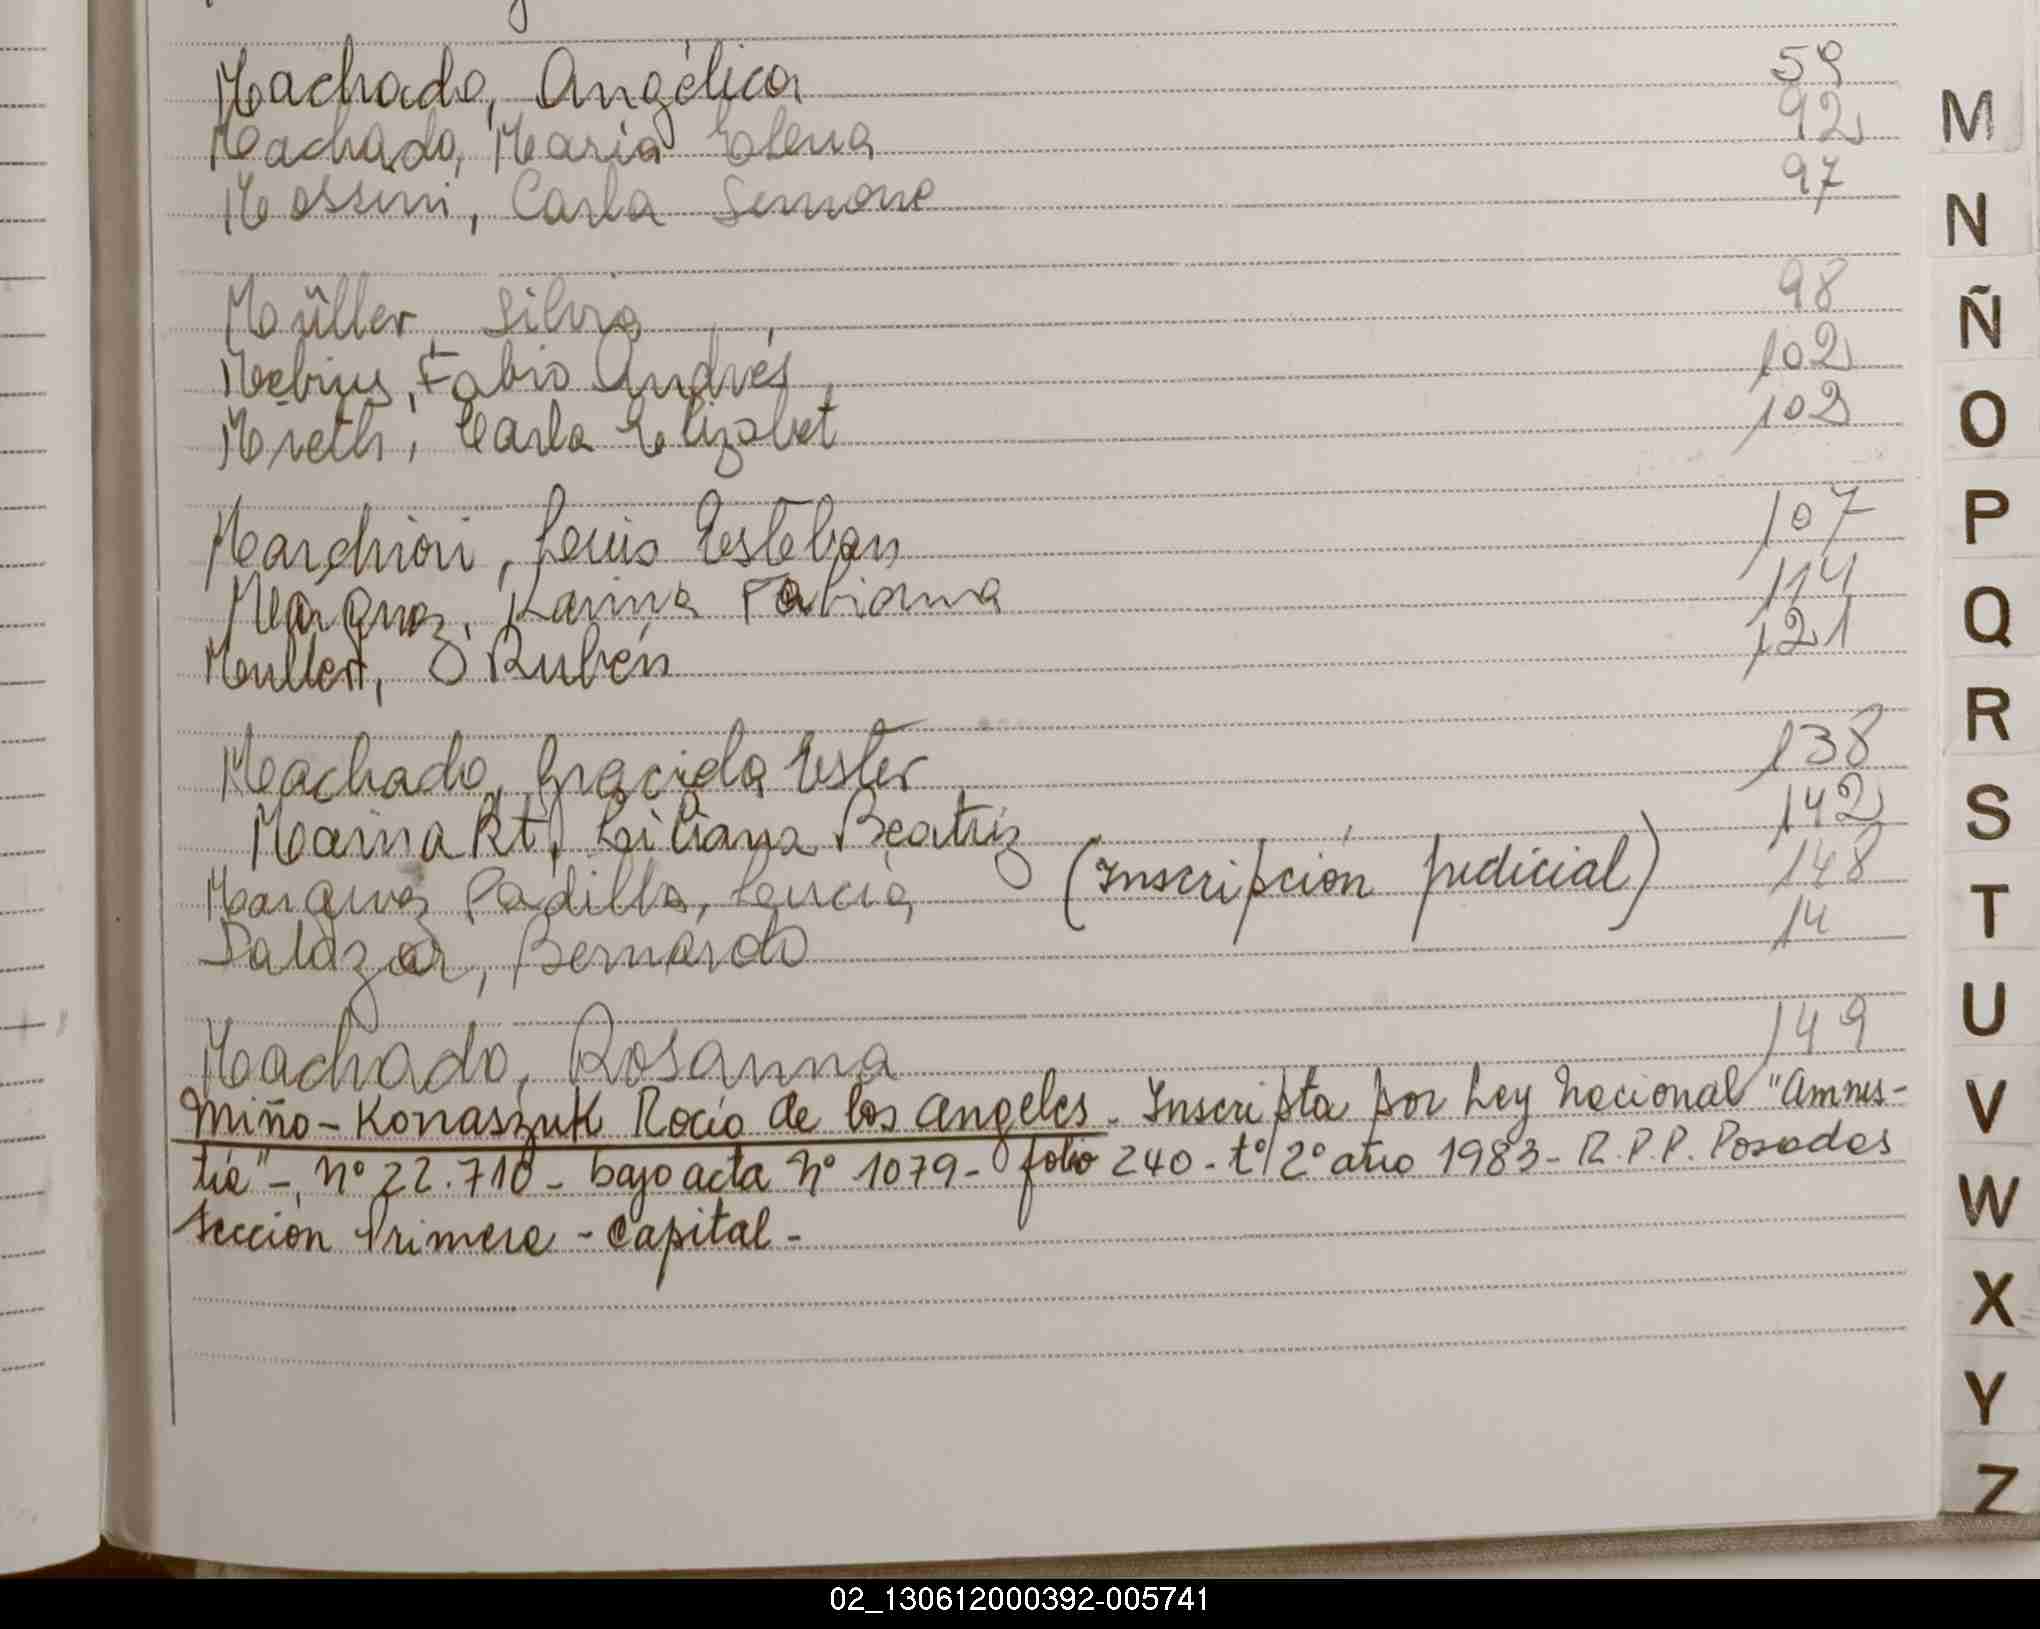 Machado, Angélica 59
Machado, Maria Elena 92
Mossini, Carla Simone 97
Müller Silvia 98
Mebius, Fabio Andrés 102
Mieth, Carla Elizabet 102
Marchiori, Luis Esteban 107
Marquez, Karina Fabiana 114
Muller, Rubén 121
Machado, Graciela Ester 138
Liliana Beatriz 142
Marquez Padilla, Lucia (Inscripción judicial) 148
Salazar, Bernardo 14
Machado, Rosanna 149
Miño-Konaszuk Rocío de los Angeles - Inscripta por Ley Nacional "Amnis-
tía" -, nº 22.710 - bajo acta nº 1079 - folio 240 - tº/2º año 1983 - R.P.P. Posadas
Sección Primera - Capital -
M
N
Ñ
O
P
Q
R
S
T
U
V
W
X
Y
Z
02_130612000392-005741